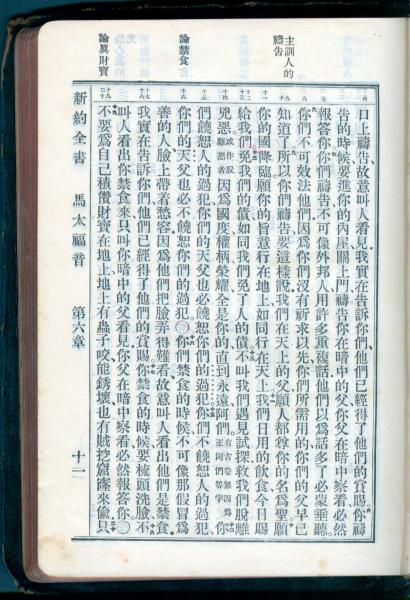 主訓人的
禱告
論禁食
論眞財寶
日上禱告、故意叫人看見、我實在告訴你們、他們已經得了他們的賞賜、你禱
告的時候、要進你的內屋、關上門、禱告你在暗中的父、你父在暗中察看、必然
報答你、你們禱告、不可像外邦人、用許多重複話、他們以爲話多了必蒙垂聽、
你們不可效法他們、因爲你們沒有祈求以先、你們所需用的、你們的父早已
知道了、所以你們禱告要這樣說、我們在天上的父、願人都尊你的名爲聖、願
你的國降臨、願你的旨意行在地上、如同行在天上、我們日用的飲食、今日賜
給我們、免我們的債、如同我們免了人的債、不叫我們遇見試探、救我們脫離
兇惡、或作脫離惡者因爲國度、權柄、榮耀、全是你的、直到永遠、阿們、有古卷無因爲至阿們等字你
們饒恕人的過犯、你們的天父也必饒恕你們的過犯、你們不饒恕人的過犯、
你們的天父也必不饒恕你們的過犯、〇你們禁食的時候、不可像那假冒爲
善的人、臉上帶着愁容、因爲他們把臉弄得難看、故意叫人看出他們是禁食、
我實在告訴你們、他們已經得了他們的賞賜、你禁食的時候、要梳頭洗臉、不
叫人看出你禁食來、只叫你暗中的父看見、你父在暗中察看、必然報答你、〇
不要爲自己積儹財寶在地上、地上有蟲子咬、能銹壞、也有賊挖窟窿來偷、只
新約全書 馬太福音 第六章 十一